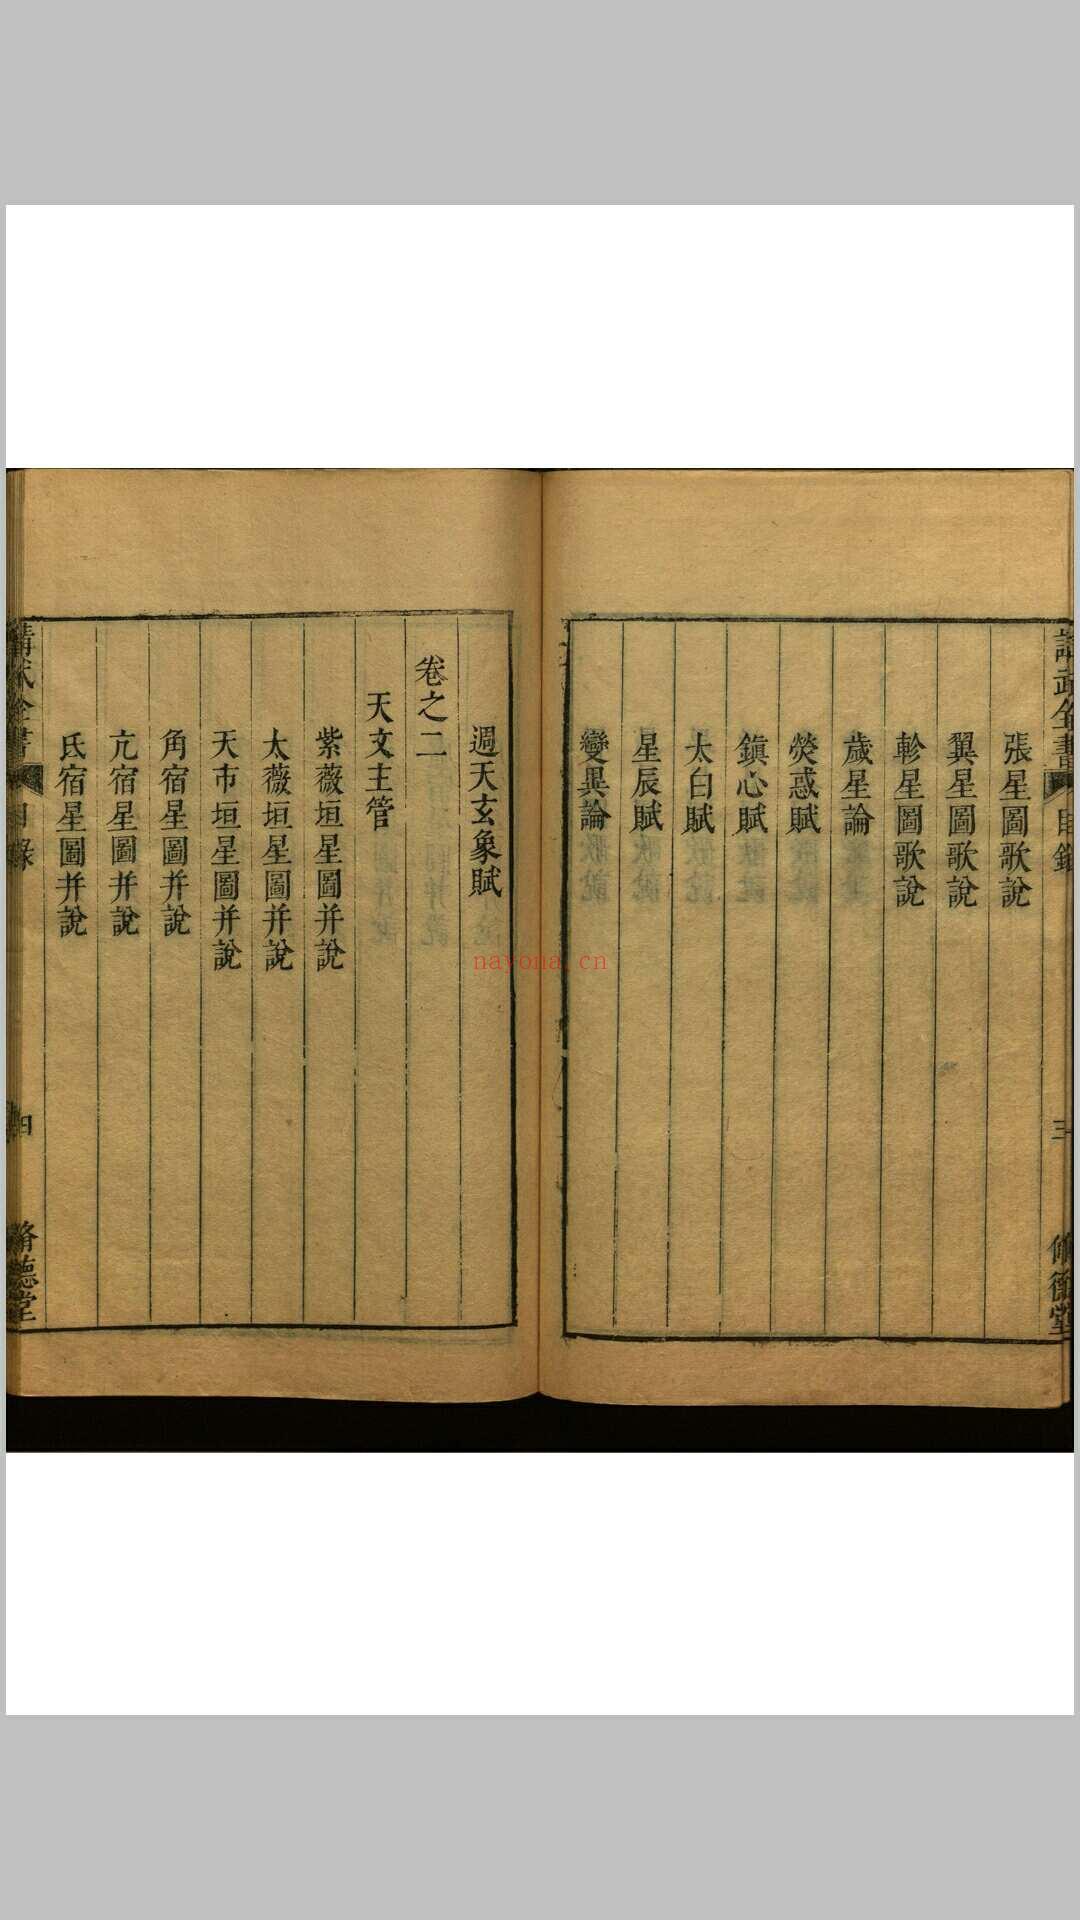 張星圖歌說
翼星圖歌說
軫星圖歌說
歲星論
熒惑賦
鎮心賦
太白賦
星辰賦
變異論
週天玄象賦
卷之二
天文主管
紫薇垣星圖并說
太薇垣星圖并說
天市垣星圖并說
角宿星圖并說
亢宿星圖并說
氐宿星圖并說
三
四
脩德堂
nayona.cn